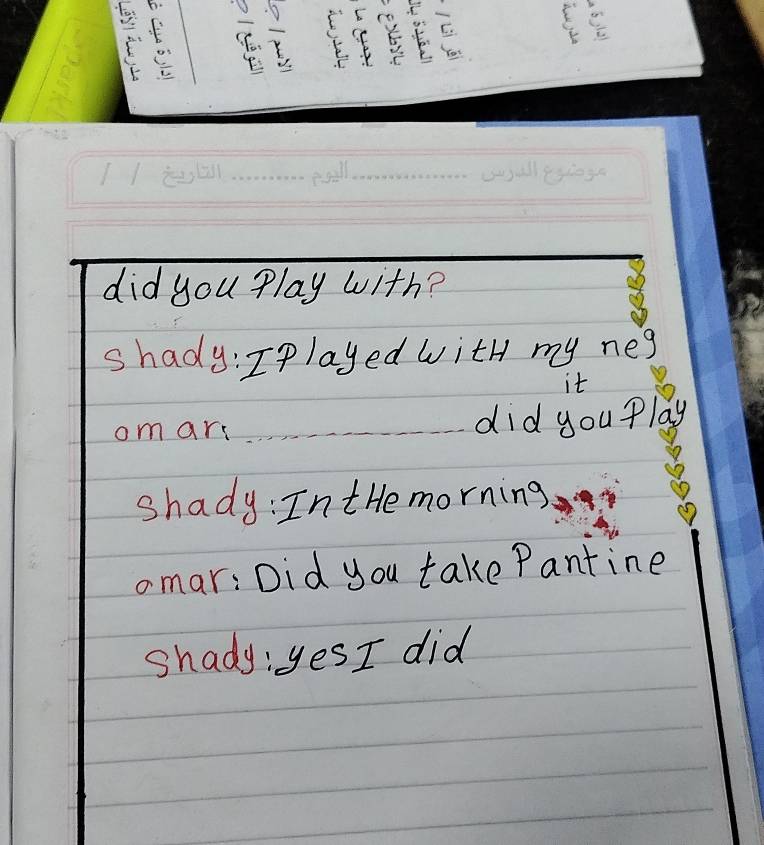 اقر انا /
المقيدة بال
بالاطلاع
بجميع ما
بالمدرسة
الاسم /
التوقيع /
إدارة ميت غ
مدرسة
موضوع الدرس ................ اليوم .......... التاريخ / /
did you Play with?
shady: I Played WitH my neg
omar: ............ did you Play it
shady: In tHe morning
omar: Did you take Pantine
shady: yes I did